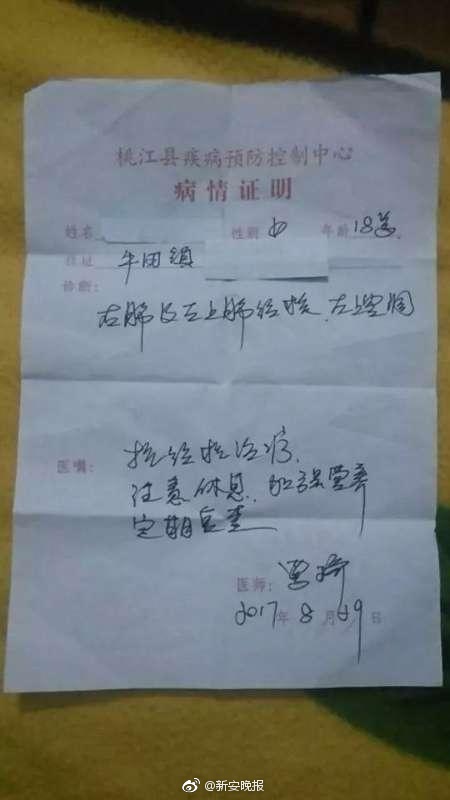 桃江县疾病预防控制中心
病情证明
姓名 性别 女 年龄 18岁
住址 牛田镇
诊断:
右肺及左上肺结核、左空洞
医嘱: 抗结核治疗、
注意休息、加强营养
定期复查
医师:
2017年8月19日
@新安晚报